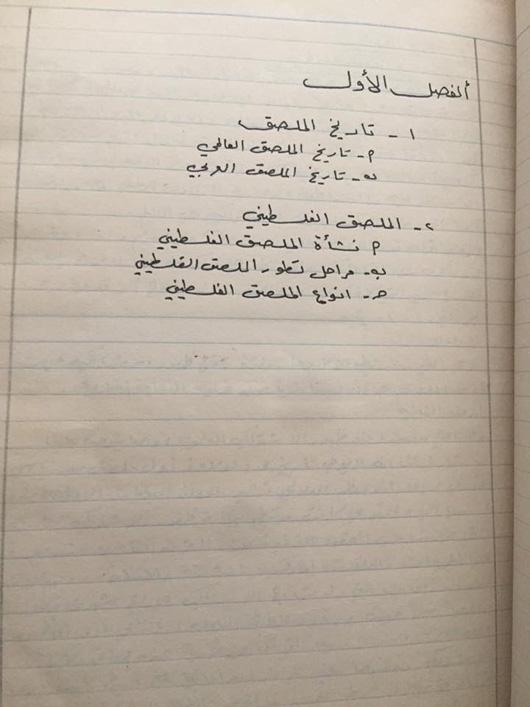 الفصل الأول
١- تاريخ الملصق
م- تاريخ الملصق العالمي
ب- تاريخ الملصق العربي
٢- الملصق الفلسطيني
م نشأة الملصق الفلسطيني
ب- مراحل تطور الملصق الفلسطيني
حـ- انواع الملصق الفلسطيني